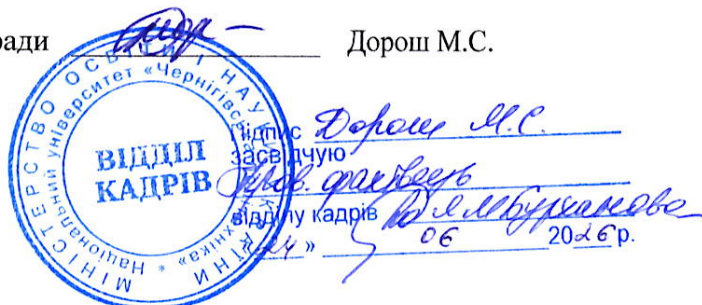 ради Дорош М.С.
МІНІСТЕРСТВО ОСВІТИ І НАУКИ УКРАЇНИ
Національний університет «Чернігівська політехніка» *
ВІДДІЛ
КАДРІВ
Підпис Дорош М.С.
засвідчую
Пров. фахівець
відділу кадрів
24 » 06 2026 р.